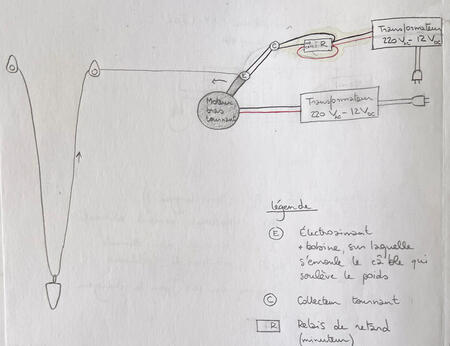 Transformateur
220 VAC - 12 VDC
R
C
E
Moteur
bras
tournant
Transformateur
220 VAC - 12 VDC
légende
E Électroaimant
+ bobine, sur laquelle
s'enroule le câble qui
soulève le poids
C Collecteur tournant
R Relais de retard
(minuteur)